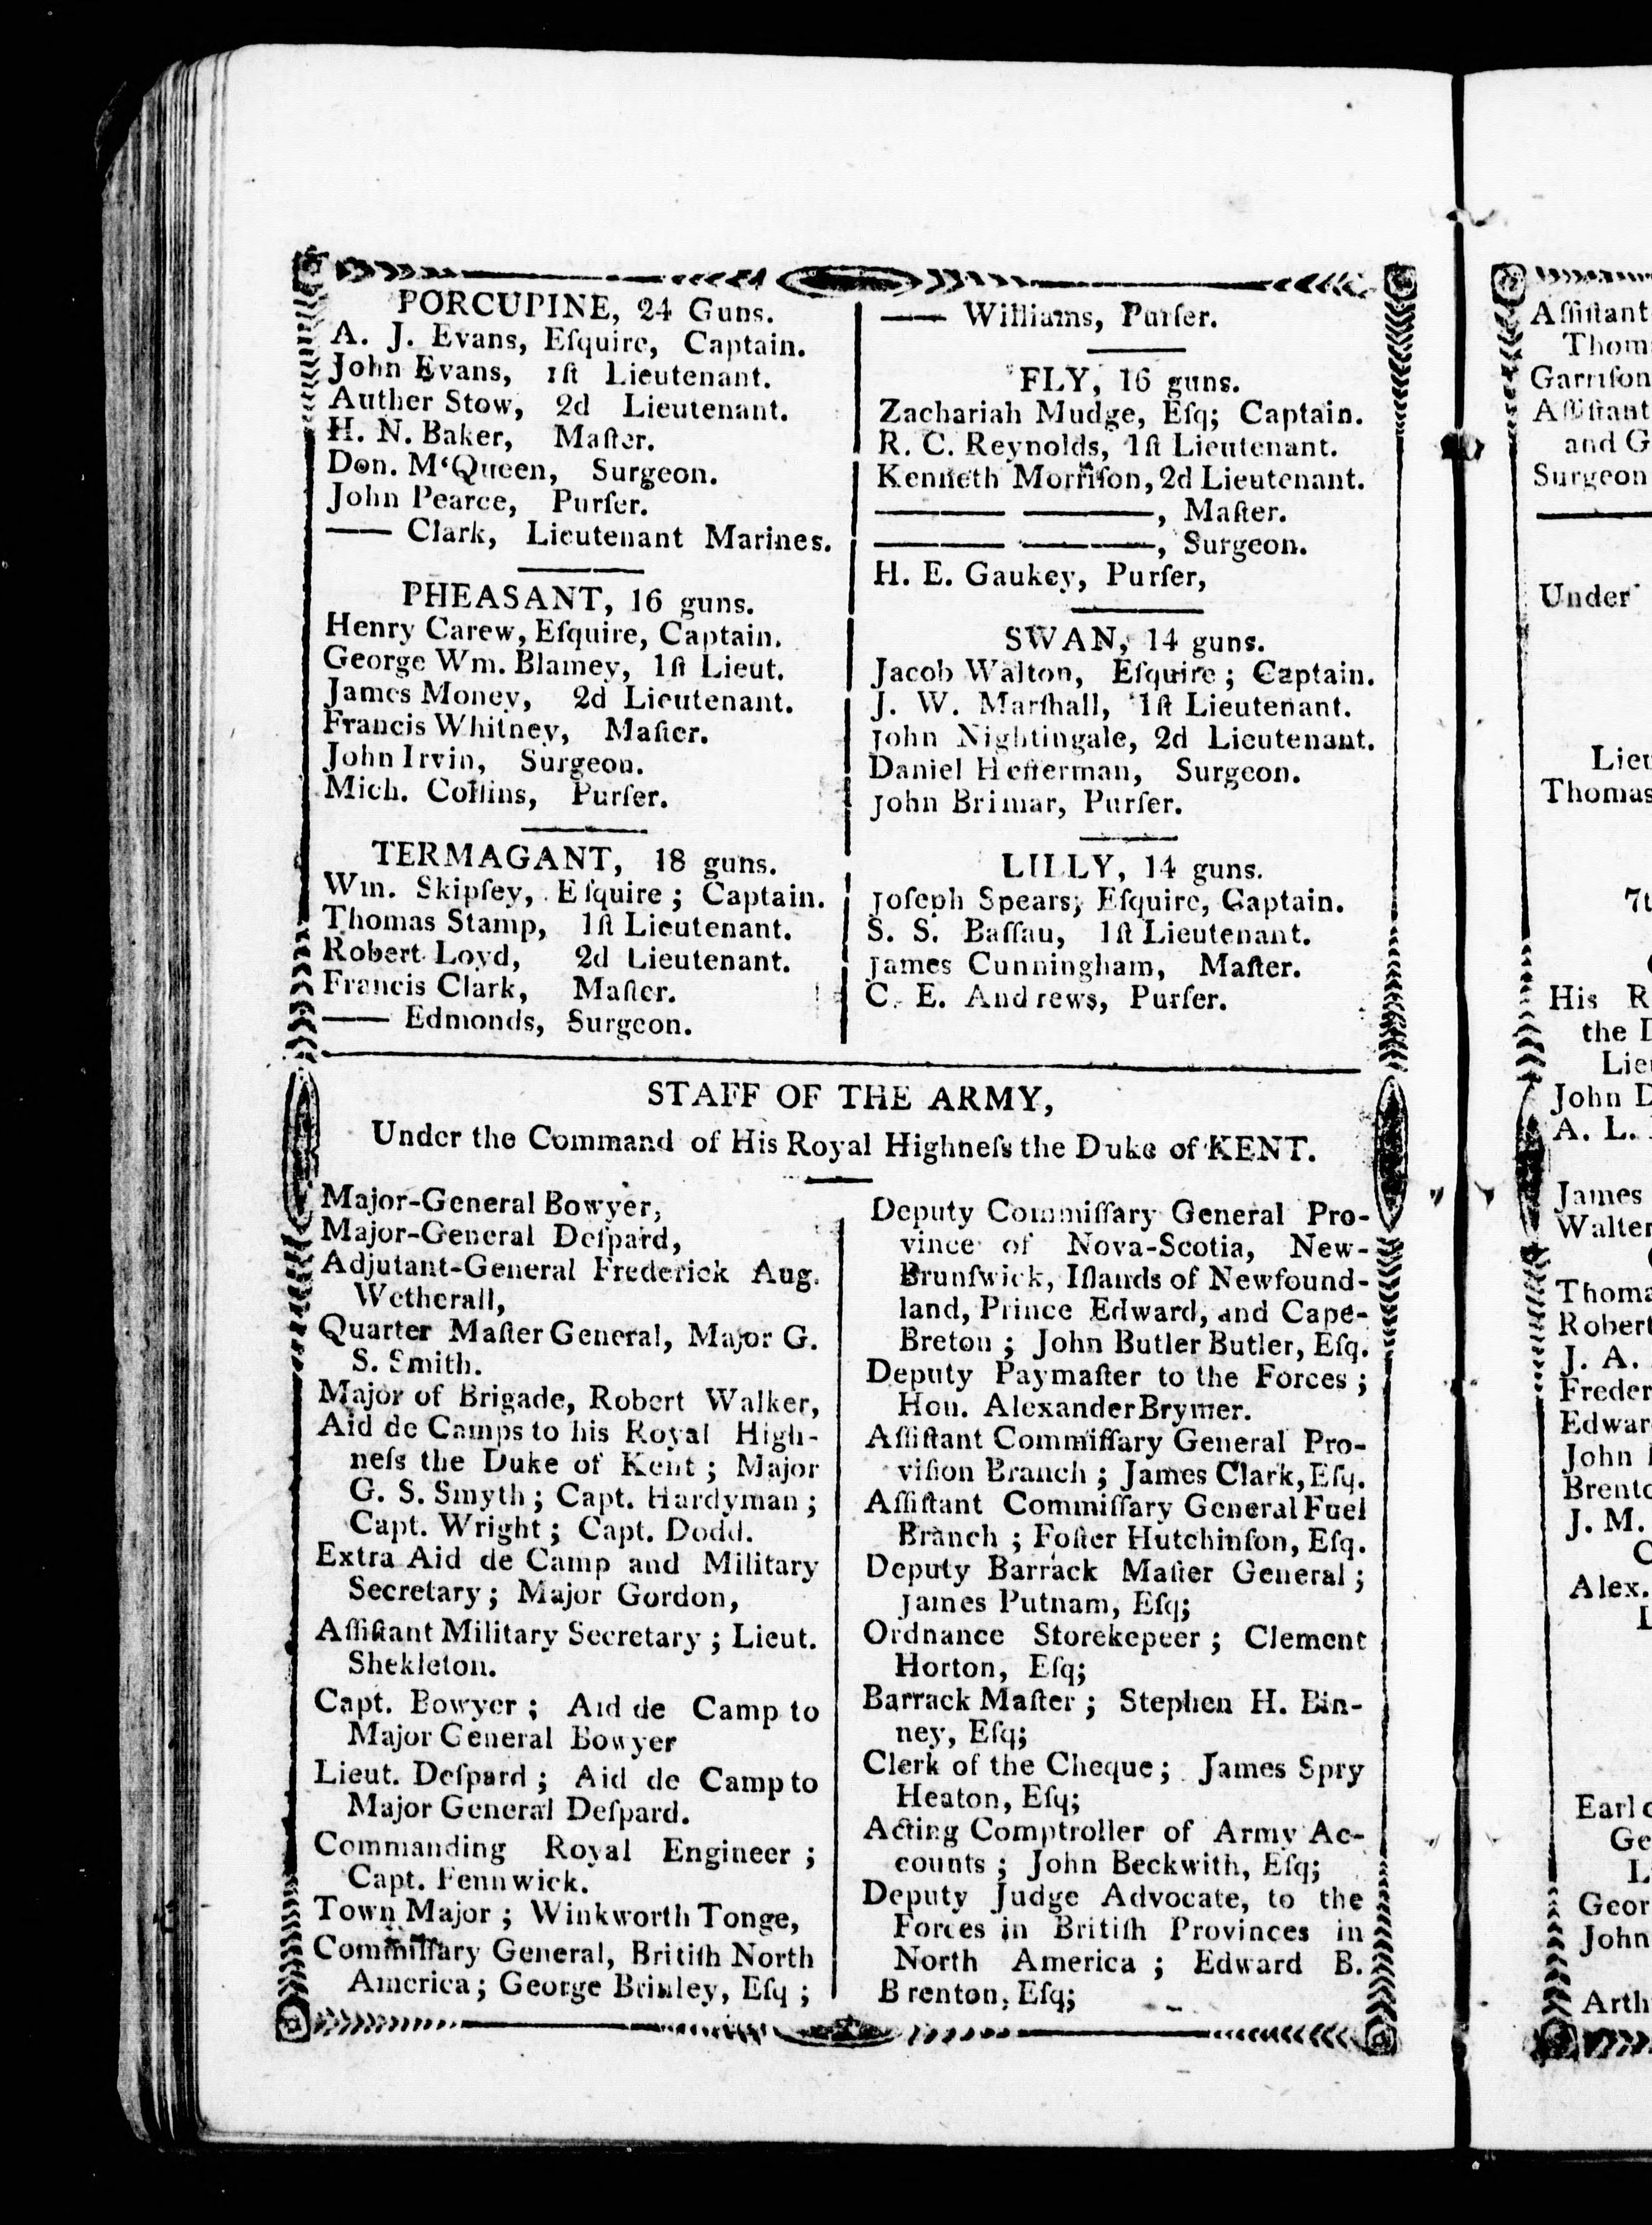 PORCUPINE, 24 Guns.
A. J. Evans, Eſquire, Captain.
John Evans, 1ſt Lieutenant.
Auther Stow, 2d Lieutenant.
H. N. Baker, Maſter.
Don. M‘Queen, Surgeon.
John Pearce, Purſer.
—— Clark, Lieutenant Marines.
PHEASANT, 16 guns.
Henry Carew, Eſquire, Captain.
George Wm. Blamey, 1ſt Lieut.
James Money, 2d Lieutenant.
Francis Whitney, Maſter.
John Irvin, Surgeon.
Mich. Collins, Purſer.
TERMAGANT, 18 guns.
Wm. Skipſey, Eſquire; Captain.
Thomas Stamp, 1ſt Lieutenant.
Robert Loyd, 2d Lieutenant.
Francis Clark, Maſter.
—— Edmonds, Surgeon.
—— Williams, Purſer.
FLY, 16 guns.
Zachariah Mudge, Eſq; Captain.
R. C. Reynolds, 1ſt Lieutenant.
Kenneth Morriſon, 2d Lieutenant.
———— ————, Maſter.
———— ————, Surgeon.
H. E. Gaukey, Purſer,
SWAN, 14 guns.
Jacob Walton, Eſquire; Captain.
J. W. Marſhall, 1ſt Lieutenant.
John Nightingale, 2d Lieutenant.
Daniel Hefferman, Surgeon.
John Brimar, Purſer.
LILLY, 14 guns.
Joſeph Spears, Eſquire, Captain.
S. S. Baſſau, 1ſt Lieutenant.
James Cunningham, Maſter.
C. E. Andrews, Purſer.
STAFF OF THE ARMY,
Under the Command of His Royal Highneſs the Duke of KENT.
Major-General Bowyer,
Major-General Deſpard,
Adjutant-General Frederick Aug.
Wetherall,
Quarter Maſter General, Major G.
S. Smith.
Major of Brigade, Robert Walker,
Aid de Camps to his Royal High-
neſs the Duke of Kent; Major
G. S. Smyth; Capt. Hardyman;
Capt. Wright; Capt. Dodd.
Extra Aid de Camp and Military
Secretary; Major Gordon,
Aſſiſtant Military Secretary; Lieut.
Shekleton.
Capt. Bowyer; Aid de Camp to
Major General Bowyer
Lieut. Deſpard; Aid de Camp to
Major General Deſpard.
Commanding Royal Engineer;
Capt. Fennwick.
Town Major; Winkworth Tonge,
Commiſſary General, Britiſh North
America; George Brinley, Eſq;
Deputy Commiſſary General Pro-
vince of Nova-Scotia, New-
Brunſwick, Iſlands of Newfound-
land, Prince Edward, and Cape-
Breton; John Butler Butler, Eſq.
Deputy Paymaſter to the Forces;
Hon. Alexander Brymer.
Aſſiſtant Commiſſary General Pro-
viſion Branch; James Clark, Eſq.
Aſſiſtant Commiſſary General Fuel
Branch; Foſter Hutchinſon, Eſq.
Deputy Barrack Maſter General;
James Putnam, Eſq;
Ordnance Storekepeer; Clement
Horton, Eſq;
Barrack Maſter; Stephen H. Bin-
ney, Eſq;
Clerk of the Cheque; James Spry
Heaton, Eſq;
Acting Comptroller of Army Ac-
counts; John Beckwith, Eſq;
Deputy Judge Advocate, to the
Forces in Britiſh Provinces in
North America; Edward B.
Brenton, Eſq;
Aſſiſtant
Thom
Garriſon
Aſſiſtant
and G
Surgeon
Under
Lieu
Thomas
7t
His R
the D
Lieu
John D
A. L.
James
Walter
Thoma
Robert
J. A.
Freder
Edwar
John
Brento
J. M.
C
Alex.
L
Earl o
Ge
L
Geor
John
Arth